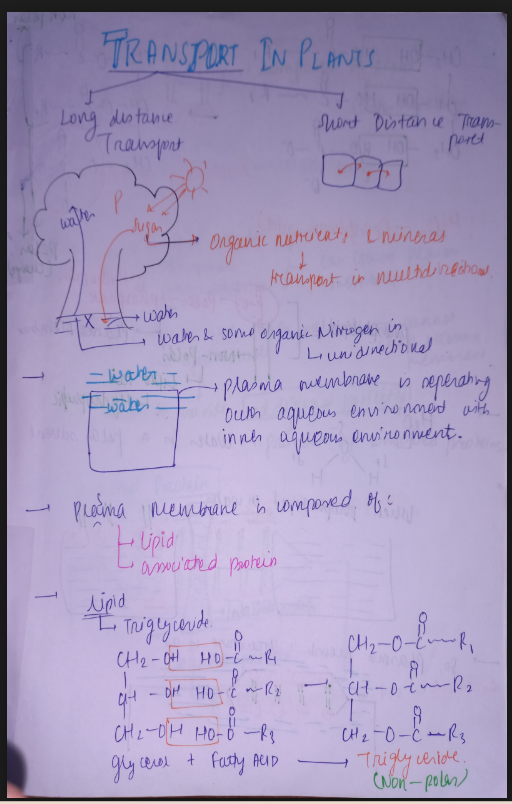 TRANSPORT IN PLANTS
Long distance
Transport
Short Distance Trans-
port
water
P
sugar
organic nutrients & minerals
transport in multidirections.
X
water
water & some organic Nitrogen is
unidirectional
water
water
plasma membrane is seperating
outer aqueous environment with
inner aqueous environment.
Plasma membrane is composed of:
lipid
associated protein
Lipid
Triglyceride
CH2 - OH HO - C - R1
O
CH - OH HO - C - R2
O
CH2 - OH HO - C - R3
O
CH2 - O - C - R1
O
CH - O - C - R2
O
CH2 - O - C - R3
O
glycerol + Fatty ACID
Triglyceride.
(Non-polar)